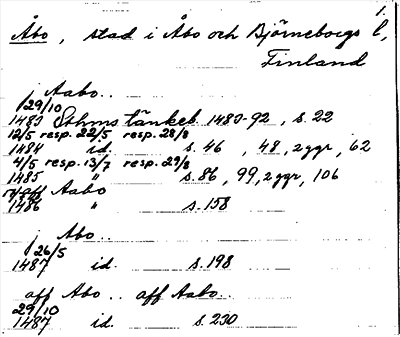 1.
Åbo, stad i Åbo och Björneborgs l,
Finland
j Aabo..
29/10
1483 Sthms tänkeb. 1483-92, s. 22
12/5 resp. 22/5 resp. 28/8
1484 id. s. 46, 48, 2 ggr, 62
4/5 resp. 13/7 resp. 29/8
1485 " s. 86, 99, 2 ggr, 106
aff Aabo
1486 " s. 158
j Abo..
26/5
1487 id. s. 198
aff Abo.. aff Aabo..
29/10
1487 id. s. 230